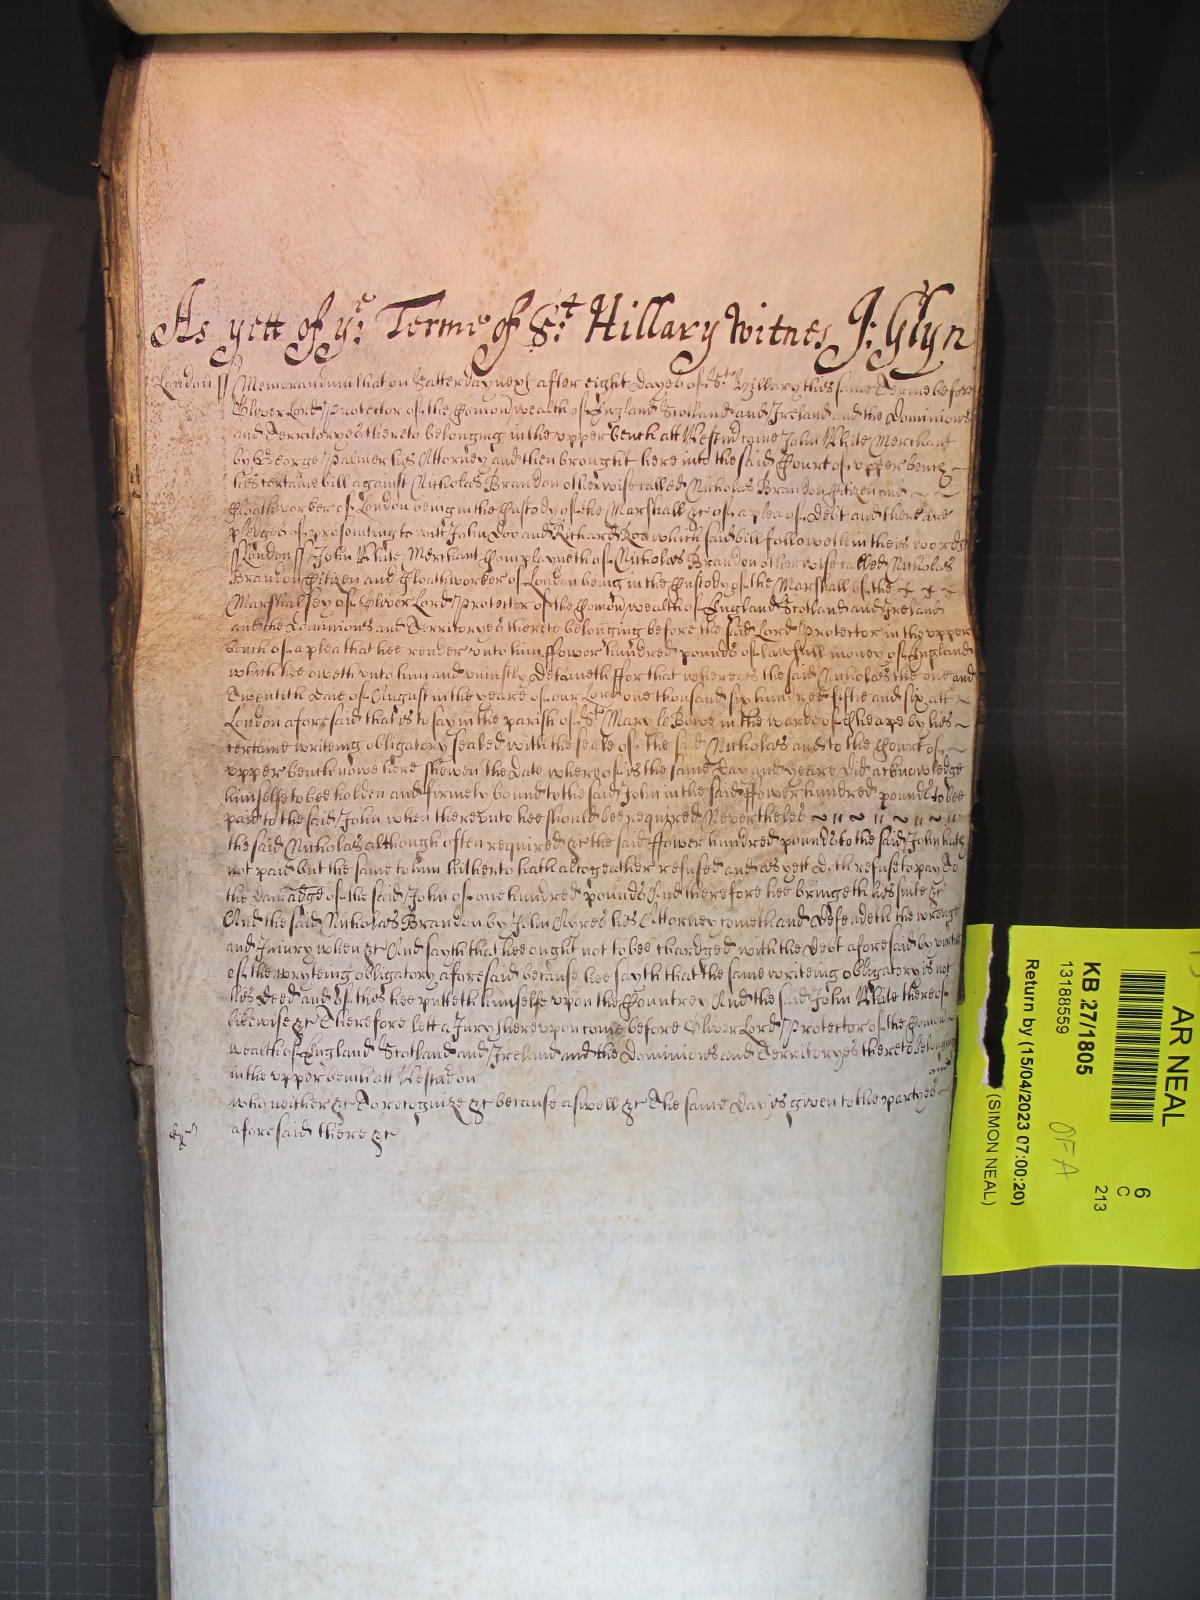 As yett of ye: Terme of St: Hillary Witnes J: Glyn
London ss Memorandum that on Satterday next after eight dayes of St Hillary this same Terme before
Oliver Lord Protector of the Comonwealth of England Scotland and Ireland and the Dominions
and Territoryes thereto belonging in the upper bench att Westmr came John White Merchant
by George Palmer his Attorney and then brought here into the said Court of upper bench
his certaine bill against Nicholas Brandon otherwise called Nicholas Brandon Citizen and
Cloathworker of London being in the Custody of the Marshall &c of a plea of debt and there are
pledges of prosecuting to witt John Doo and Richard Roo which said bill followeth in theis words
ss London ss John White Merchant Complayneth of Nicholas Brandon otherwise called Nicholas
Brandon Citizen and Cloathworker of London being in the Custody of the Marshall of the
Marshalsey of Oliver Lord Protector of the Comonwealth of England Scotland and Ireland
and the Dominions and Territoryes thereto belonging before the said Lord Protector in the upper
bench of a plea that hee render unto him ffower hundred pounds of lawfull money of England
which hee oweth unto him and uniustly detaineth ffor that whereas the said Nicholas the one and
Twentith daie of August in the yeare of our Lord one thousand six hundred fiftie and six att
London aforesaid that is to say in the parish of St Mary le Bowe in the warde of Cheape by his
certaine writeing obligatory sealed with the seale of the said Nicholas and to the Court of
upper bench nowe here shewen the date whereof is the same day and yeare did acknowledge
himselfe to bee holden and firmely bound to the said John in the said ffower hundred pounds to bee
paid to the said John when thereunto hee should bee required Nevertheles
the said Nicholas although often required &c the said ffower hundred pounds to the said John hath
not paid but the same to him hitherto hath altogeather refused and as yett doth refuse to pay To
the damadge of the said John of one hundred pounds And therefore hee bringeth his suite &c
And the said Nicholas Brandon by John Ayres his Attorney cometh and defendeth the wronge
and Iniury when &c And sayth that hee ought not to bee chardged with the debt aforesaid by virtue
of the wryteing obligatory aforesaid because hee sayth that the same writeing obligatory is not
his deed and of this hee putteth himselfe upon the Countrey And the said John White thereof
likewise &c Therefore lett a Jury hereupon come before Oliver Lord Protector of the Comon
wealth of England Scotland and Ireland and the Dominions and Territoryes thereto belonging
in the upper bench att Westm on and
who neither &c To recognize &c because aswell &c The same day is given to the partyes
aforesaid there &c
AR NEAL
6
C
213
KB 27/1805
13188559
OFA
Return by (15/04/2023 07:00:20)
(SIMON NEAL)